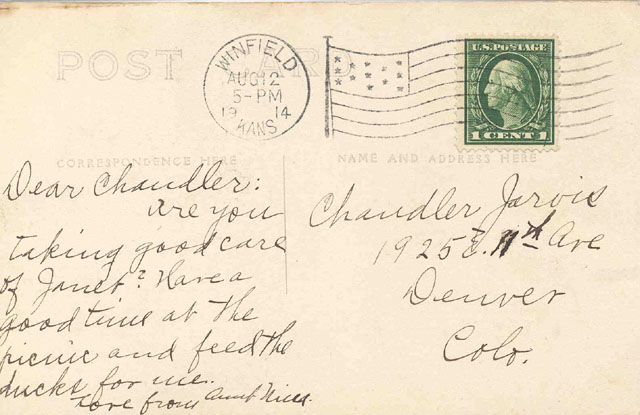 POST CAR
WINFIELD
AUG 12
5-PM
19 14
KANS
U.S. POSTAGE
1 CENT 1
CORRESPONDENCE HERE
NAME AND ADDRESS HERE
Dear Chandler:
Are you
taking good care
of Janet? Have a
good time at the
picnic and feed the
ducks for me.
Love from Aunt
Chandler Jarvis
1925 E. 11th Ave
Denver
Colo.